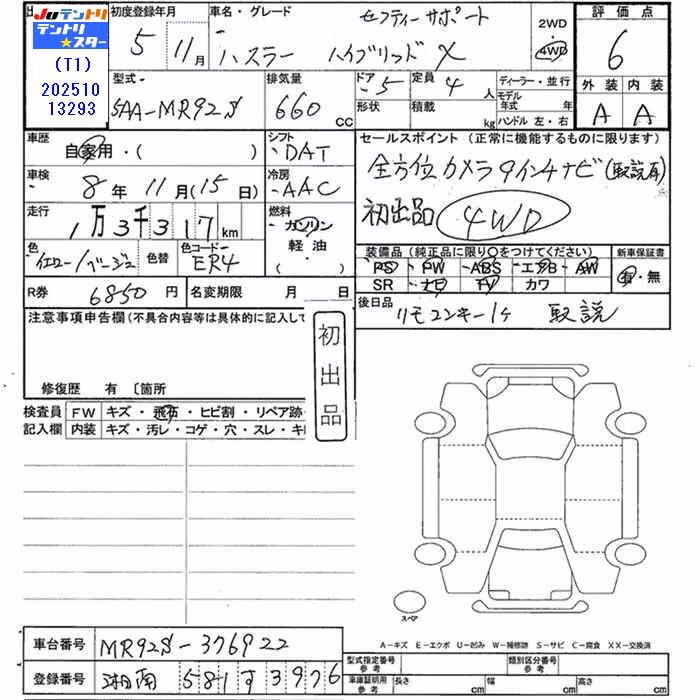 JUテントリ
テントリ★スター
(T1)
202510
13293
初度登録年月
5 11月
車名・グレード
セーフティーサポート
ハスラー ハイブリッド X
2WD
・
4WD
評価点
6
外装 内装
A A
型式・
5AA-MR92S
排気量
660 CC
ドア 5
形状
定員 4 人
積載 kg
ディーラー・並行
モデル年式 年
ハンドル 左・右
車歴
自家用・( )
シフト
DAT
車検
8年11月(15日)
冷房
AAC
走行
1万3千317km
燃料
ガソリン
軽油
( )
色
イエロー/ベージュ
色替
色コード
ER4
R券 6850円
名変期限 月 日
セールスポイント (正常に機能するものに限ります)
全方位カメラ 9インチナビ(取説有)
初出品 4WD
装備品 (純正品に限り○をつけてください)
PS PW ABS エアB AW
SR ナビ TV カワ
新車保証書
有・無
後日品 リモコンキー1ヶ 取説
注意事項申告欄(不具合内容等は具体的に記入して
初出品
修復歴 有 〔箇所
検査員記入欄
FW キズ・飛石・ヒビ割・リペア跡
内装 キズ・汚レ・コゲ・穴・スレ・キ
スペア
A-キズ E-エクボ U-凹み W-補修跡 S-サビ C-腐食 XX-交換済
車台番号 MR92S-376922
登録番号 湘南 581 す 3976
型式指定番号
参考
類別区分番号
参考
車庫証明用
参考
長さ cm
幅 cm
高さ cm